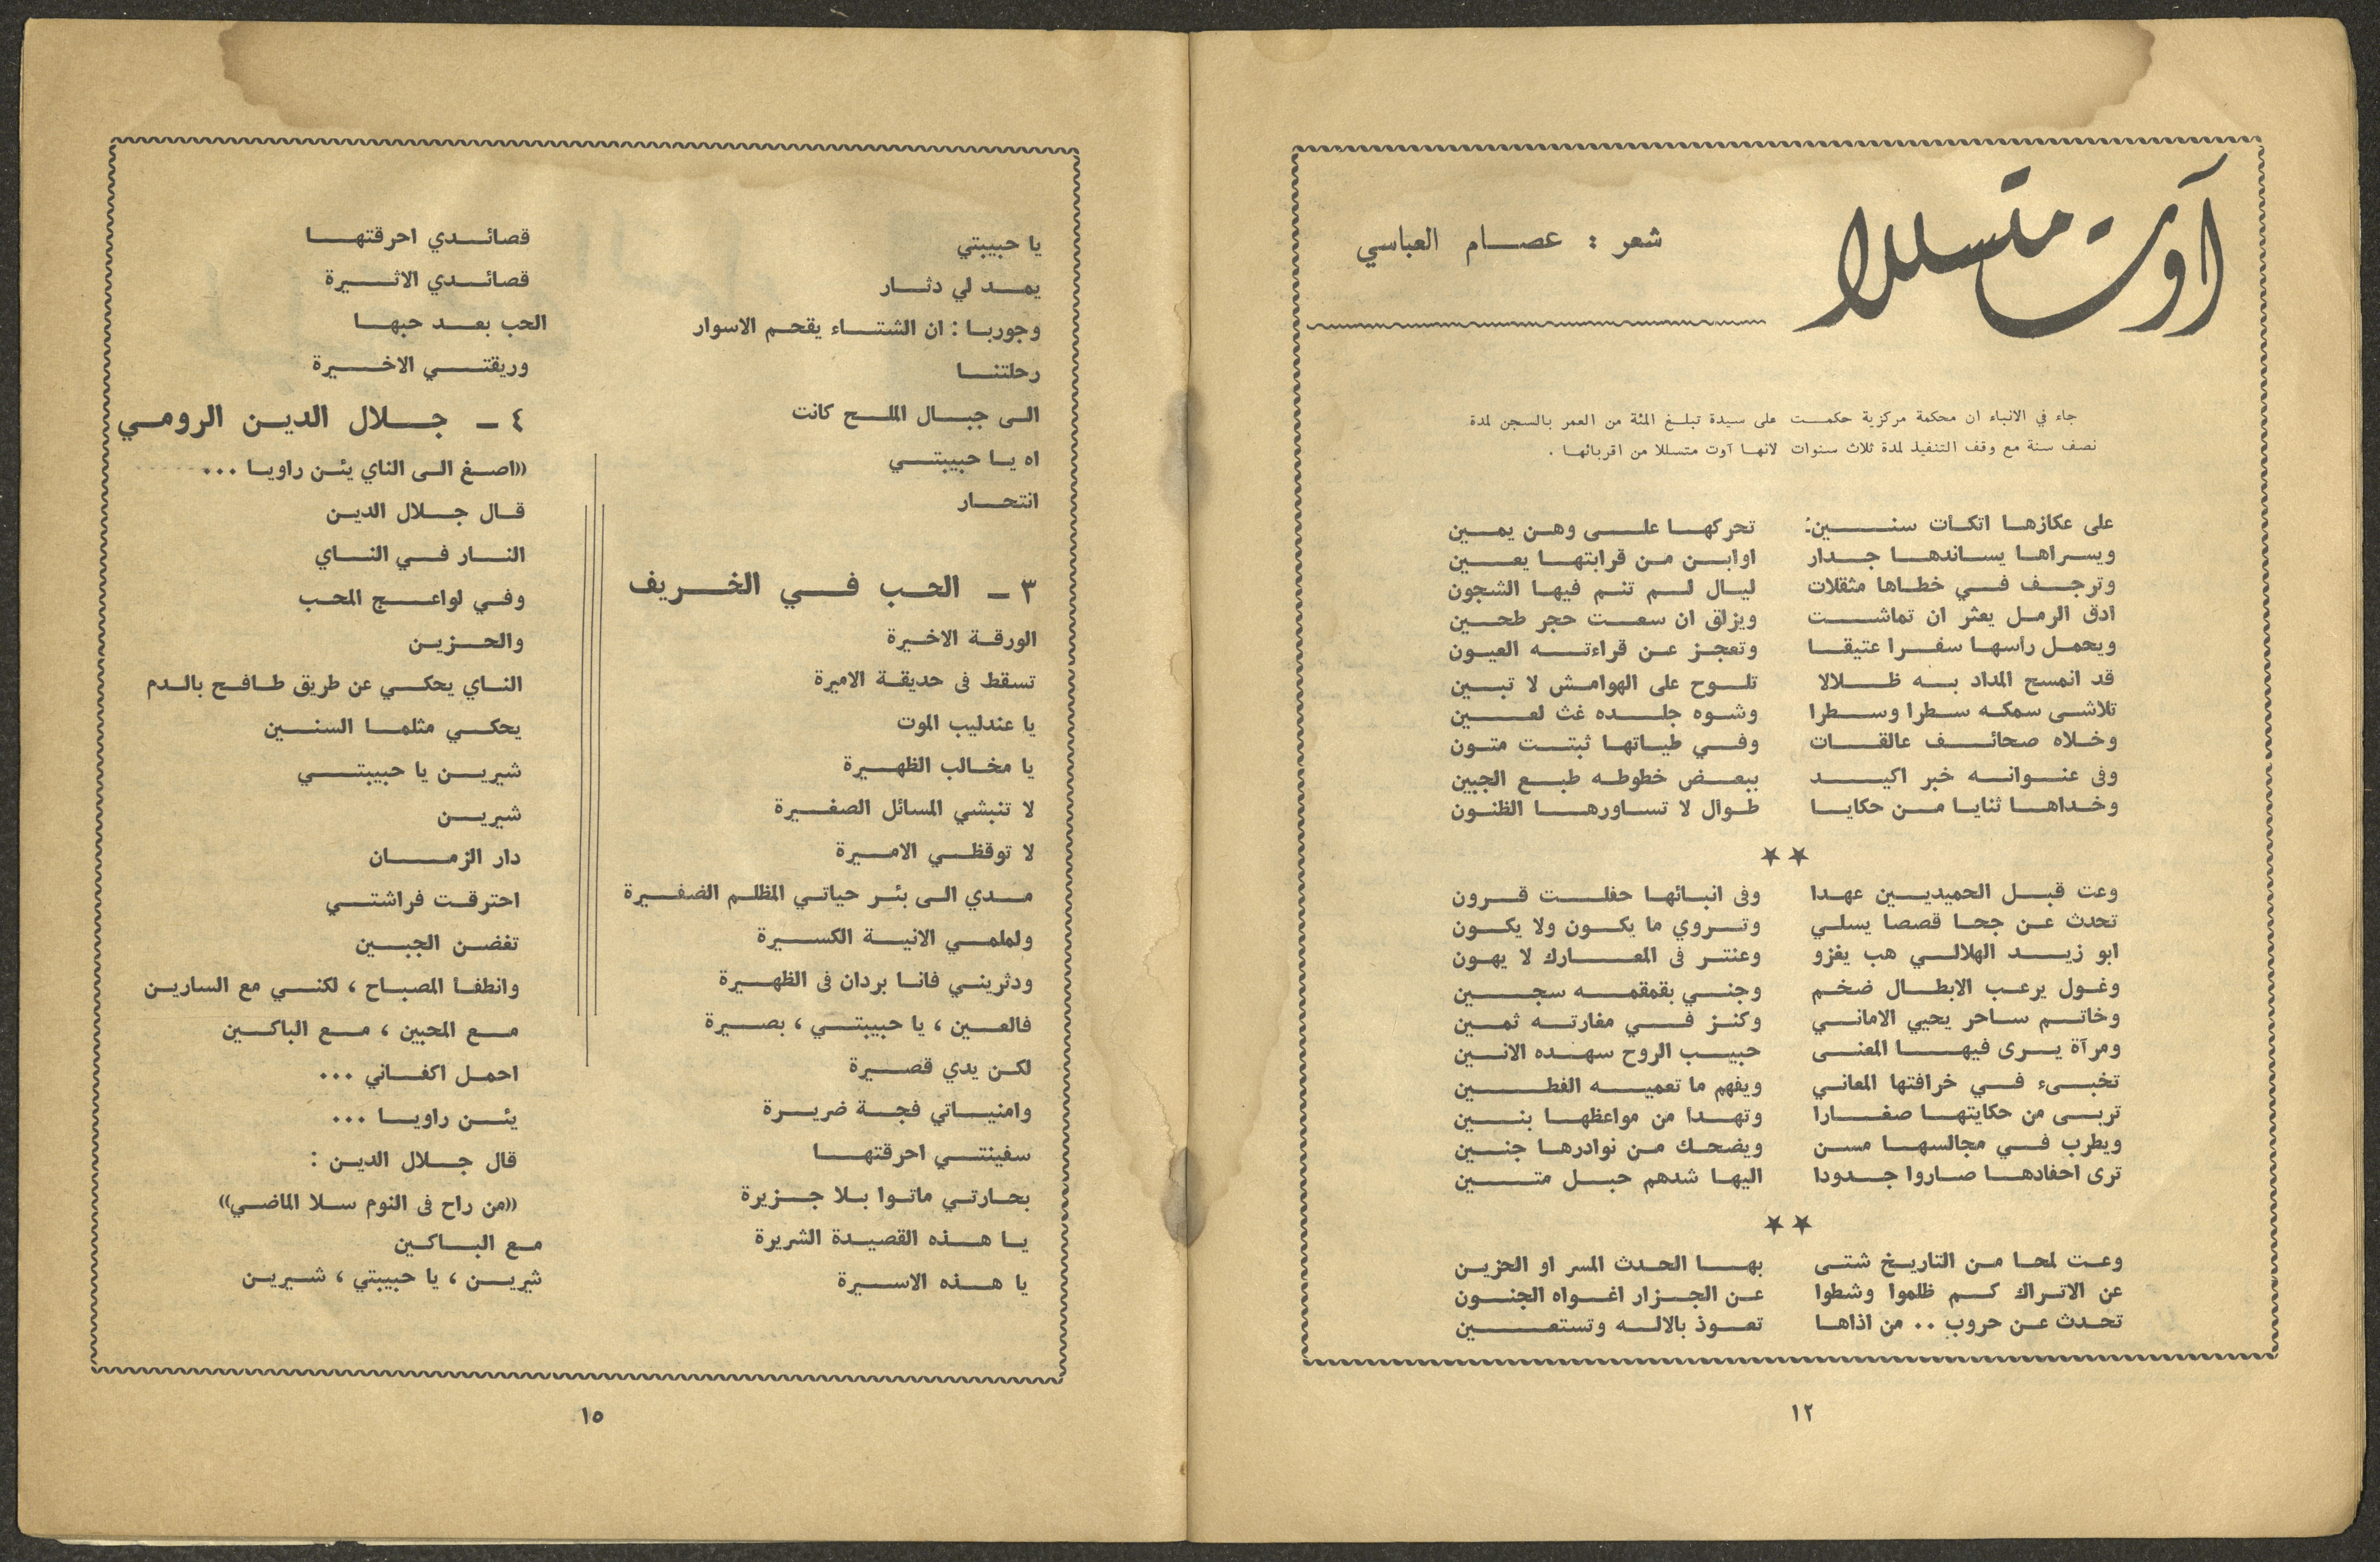 آوت متسللا
شعر : عصام العباسي
جاء في الانباء ان محكمة مركزية حكمت على سيدة تبلغ المئة من العمر بالسجن لمدة
نصف سنة مع وقف التنفيذ لمدة ثلاث سنوات لانها آوت متسللا من اقربائها .
على عكازها اتكأت سنين: تحركها على وهن يمين
ويسراها يساندها جدار اوابن من قرابتها يعين
وترجف في خطاها مثقلات ليال لم تنم فيها الشجون
ادق الرمل يعثر ان تماشت ويزلق ان سعت حجر طحين
ويحمل راسها سفرا عتيقا وتعجز عن قراءته العيون
قد انمسح المداد به ظلالا تلوح على الهوامش لا تبين
تلاشى سمكه سطرا وسطرا وشوه جلده غث لعين
وخلاه صحائف عالقات وفي طياتها ثبتت متون
وفى عنوانه خبر اكيد ببعض خطوطه طبع الجبين
وخداها ثنايا من حكايا طوال لا تساورها الظنون
★★
وعت قبل الحميديين عهدا وفى انبائها حفلت قرون
تحدث عن جحا قصصا يسلي وتروي ما يكون ولا يكون
ابو زيد الهلالي هب يغزو وعنتر فى المعارك لا يهون
وغول يرعب الابطال ضخم وجني بقمقمه سجين
وخاتم ساحر يحيي الاماني وكنز في مغارته ثمين
ومرآة يرى فيها المعنى حبيب الروح سهده الانين
تخبىء في خرافتها المعاني ويفهم ما تعميه الفطين
تربى من حكايتها صغارا وتهدا من مواعظها بنين
ويطرب في مجالسها مسن ويضحك من نوادرها جنين
ترى احفادها صاروا جدودا اليها شدهم حبل متين
★★
وعت لمحا من التاريخ شتى بها الحدث المسر او الحزين
عن الاتراك كم ظلموا وشطوا عن الجزار اغواه الجنون
تحدث عن حروب .. من اذاها تعوذ بالاله وتستعين
١٢
يا حبيبتي
يمد لي دثار
وجوربا : ان الشتاء يقحم الاسوار
رحلتنا
الى جبال الملح كانت
اه يا حبيبتي
انتحار
٣ ـ الحب في الخريف
الورقة الاخيرة
تسقط فى حديقة الاميرة
يا عندليب الموت
يا مخالب الظهيرة
لا تنبشي المسائل الصغيرة
لا توقظي الاميرة
مدي الى بئر حياتي المظلم الضفيرة
ولملمي الانية الكسيرة
ودثريني فانا بردان فى الظهيرة
فالعين ، يا حبيبتي ، بصيرة
لكن يدي قصيرة
وامنياتي فجة ضريرة
سفينتي احرقتها
بحارتي ماتوا بلا جزيرة
يا هذه القصيدة الشريرة
يا هذه الاسيرة
قصائدي احرقتها
قصائدي الاثيرة
الحب بعد حبها
وريقتي الاخيرة
٤ ـ جلال الدين الرومي
«اصغ الى الناي يئن راويا ...
قال جلال الدين
النار في الناي
وفي لواعج المحب
والحزين
الناي يحكي عن طريق طافح بالدم
يحكي مثلما السنين
شيرين يا حبيبتي
شيرين
دار الزمان
احترقت فراشتي
تغضن الجبين
وانطفأ المصباح ، لكني مع السارين
مع المحبين ، مع الباكين
احمل اكفاني ...
يئن راويا ...
قال جلال الدين :
«من راح فى النوم سلا الماضي»
مع الباكين
شيرين ، يا حبيبتي ، شيرين
١٥